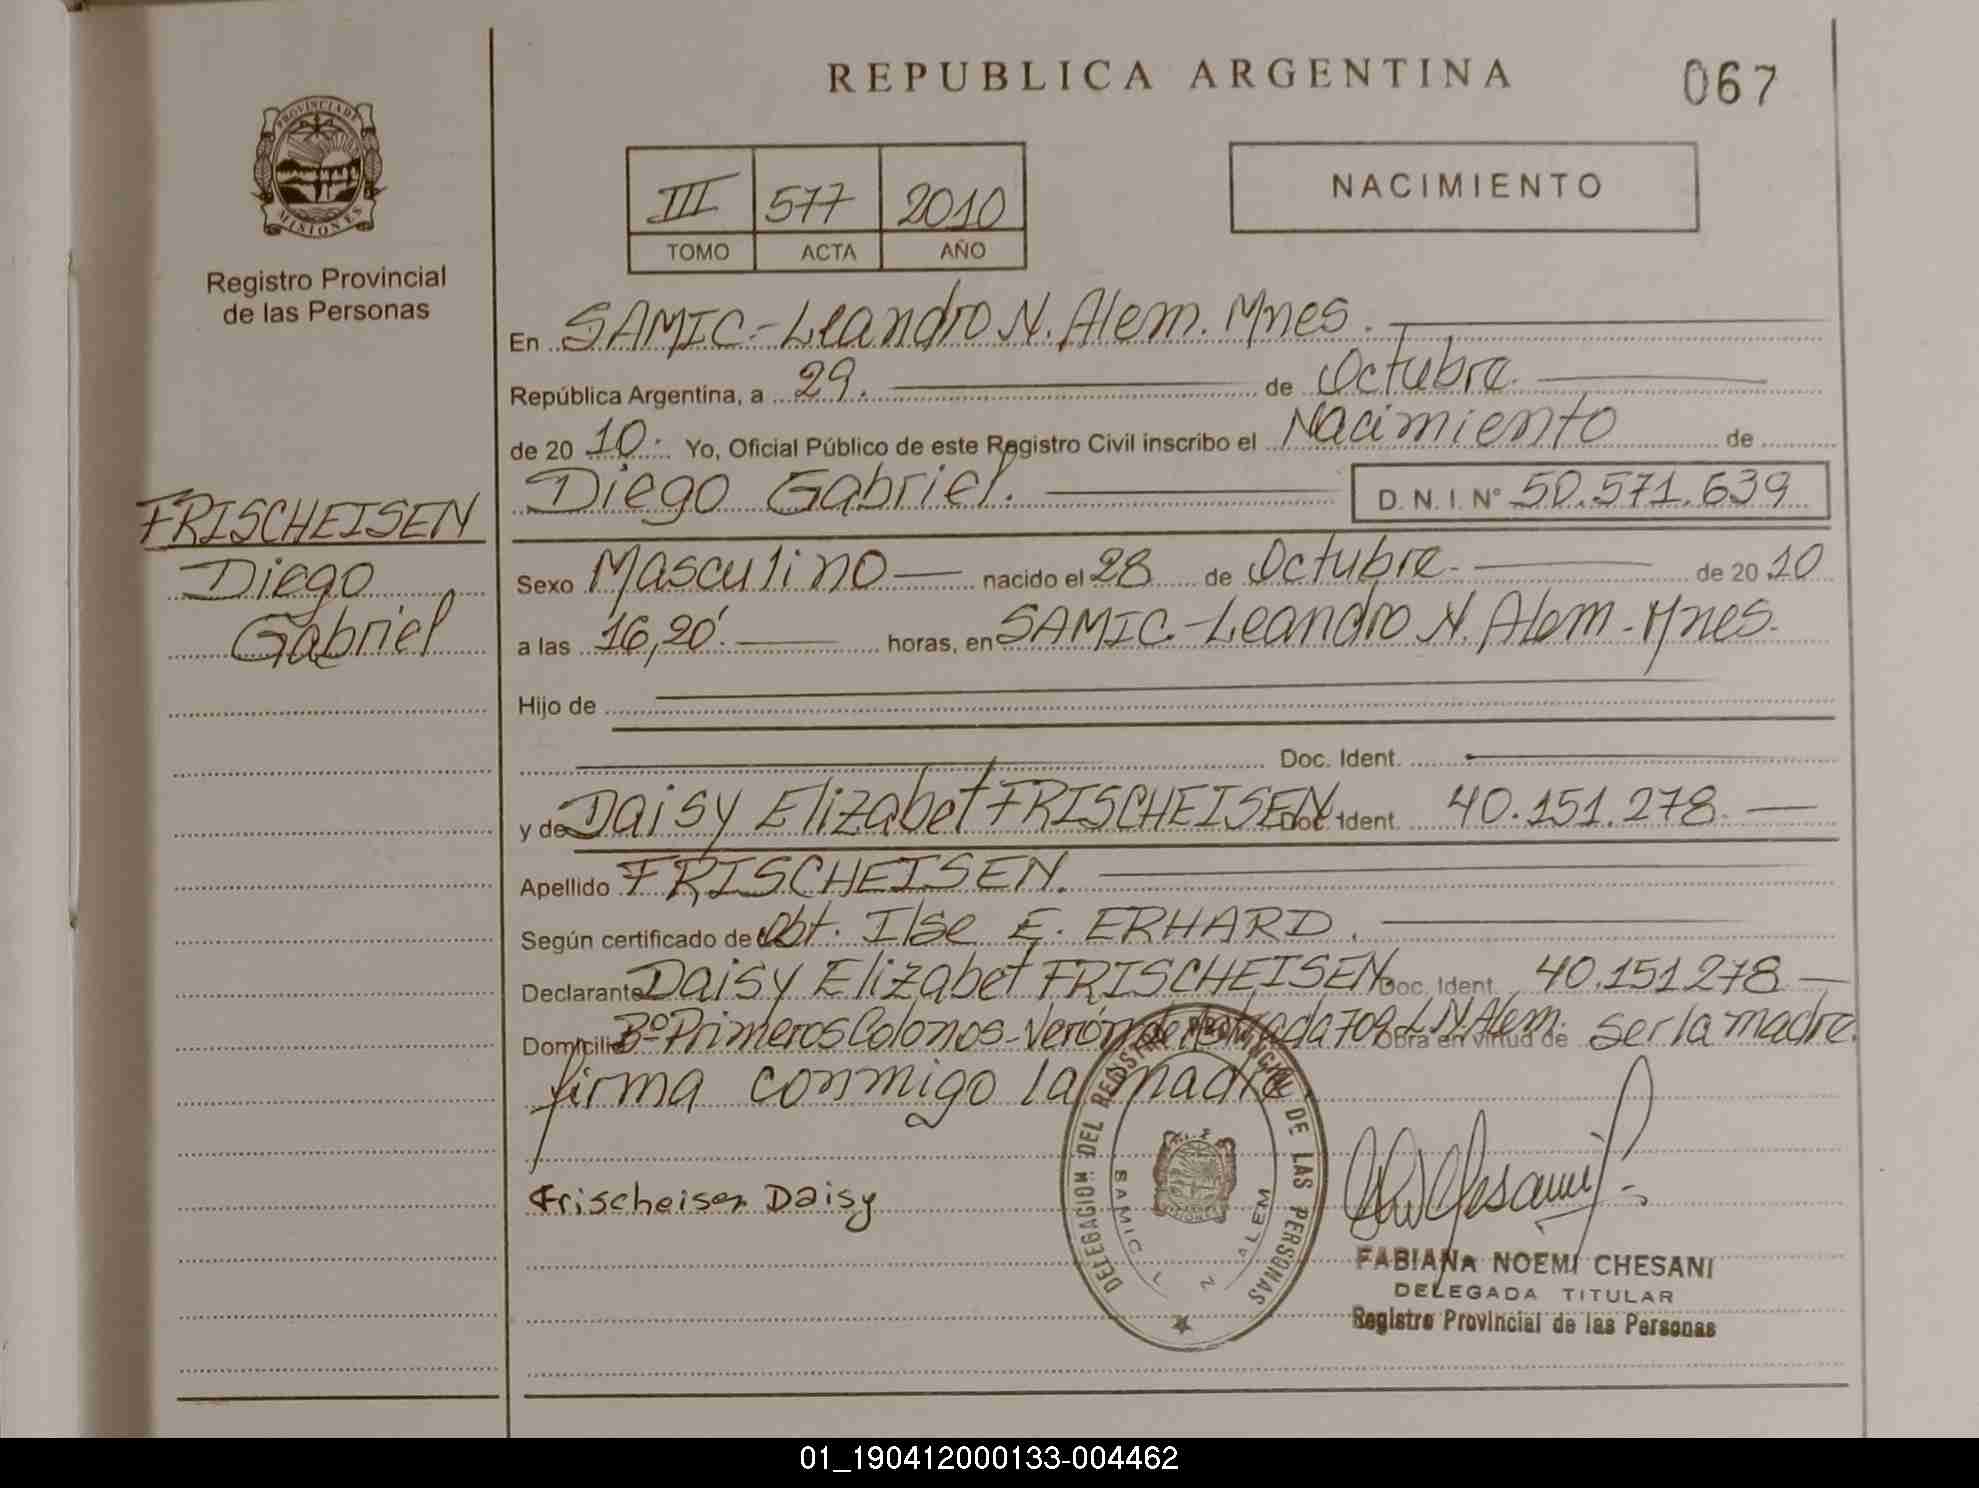 REPUBLICA ARGENTINA
067
PROVINCIA DE MISIONES
Registro Provincial
de las Personas
III 577 2010
TOMO ACTA AÑO
NACIMIENTO
En SAMIC-Leandro N. Alem. Mnes.
República Argentina, a 29. de Octubre.
de 20 10. Yo, Oficial Público de este Registro Civil inscribo el Nacimiento de
Diego Gabriel. D. N. I. Nº 50.571.639
FRISCHEISEN
Diego
Gabriel
Sexo Masculino nacido el 28 de Octubre. de 20 10
a las 16,20'. horas, en SAMIC.-Leandro N. Alem-Mnes.
Hijo de
Doc. Ident.
y de Daisy Elizabet FRISCHEISEN Doc. Ident. 40.151.278.
Apellido FRISCHEISEN.
Según certificado de Obt. Ilse E. ERHARD.
Declarante Daisy Elizabet FRISCHEISEN Doc. Ident. 40.151278
Domicilio Bº Primeros Colonos-Verón de 709 L.N.Alem. Obra en virtud de ser la madre.
firma conmigo la madre.
Frischeisen Daisy
DELEGACION DEL REGISTRO PROVINCIAL DE LAS PERSONAS
SAMIC L N ALEM
FABIANA NOEMI CHESANI
DELEGADA TITULAR
Registro Provincial de las Personas
01_190412000133-004462